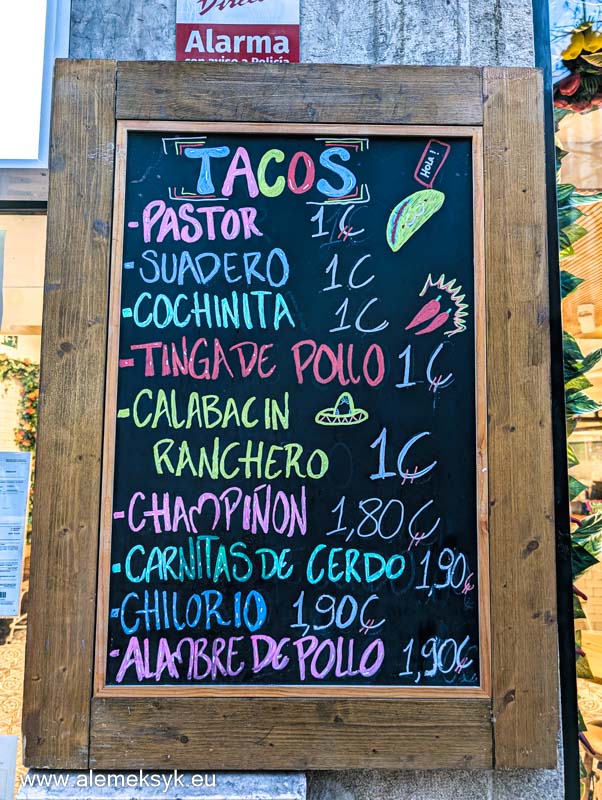 Direct
Alarma
con aviso a Policía
TACOS
Hola!
-PASTOR 1€
-SUADERO 1€
-COCHINITA 1€
-TINGA DE POLLO 1€
-CALABACIN
RANCHERO 1€
-CHAMPIÑON 1,80€
-CARNITAS DE CERDO 1,90€
-CHILORIO 1,90€
-ALAMBRE DE POLLO 1,90€
www.alemeksyk.eu